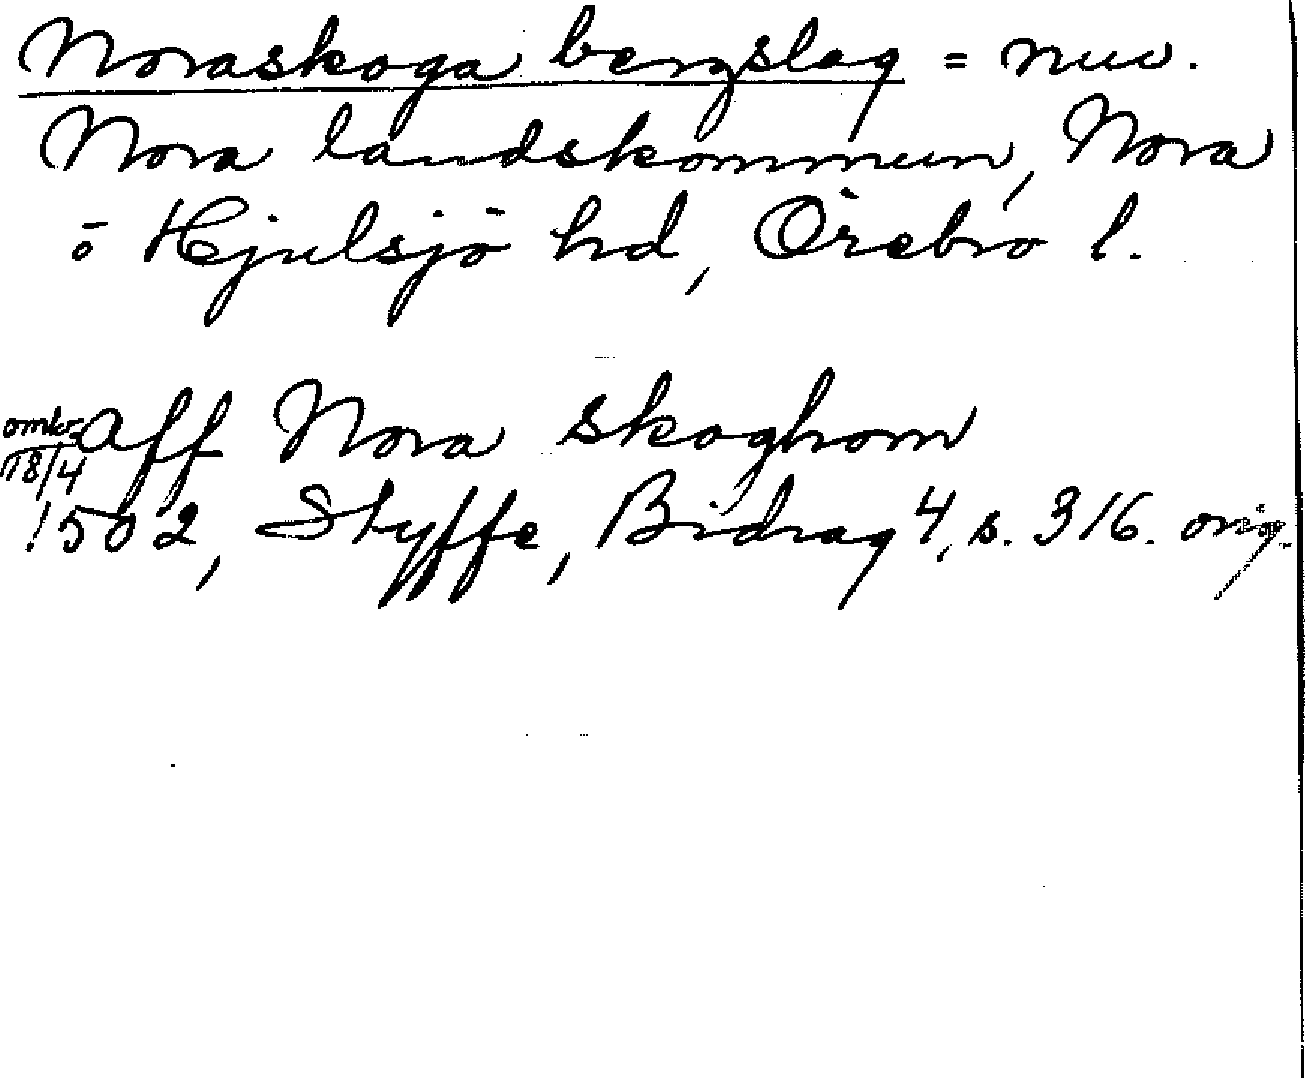 Noraskoga bergslag = nuv.
Nora landskommun, Nora
o Hjulsjö hd, Örebro l.
aff Nora skoghom
omkr 18/4
1502, Styffe, Bidrag 4, s. 316. orig.